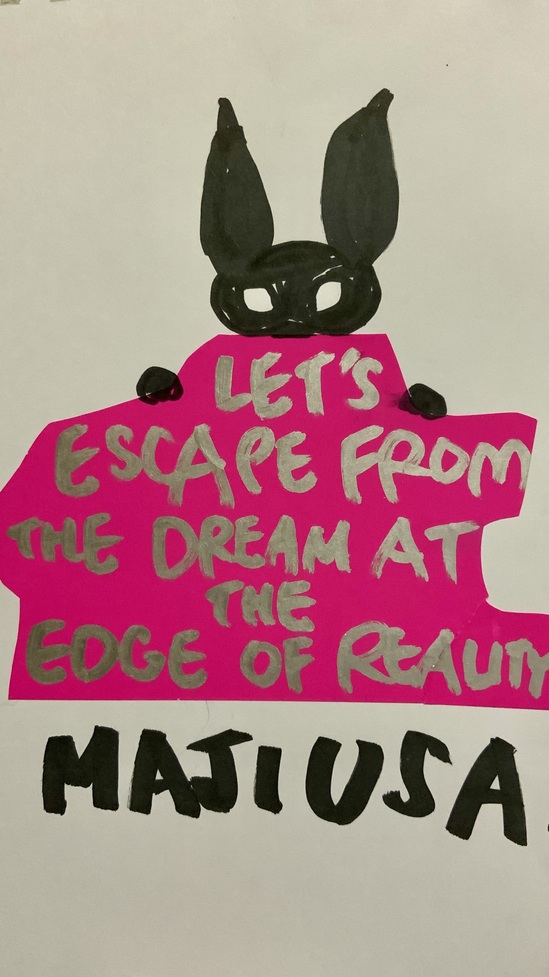 LET'S
ESCAPE FROM
THE DREAM AT
THE
EDGE OF REALITY
MAJIUSA.